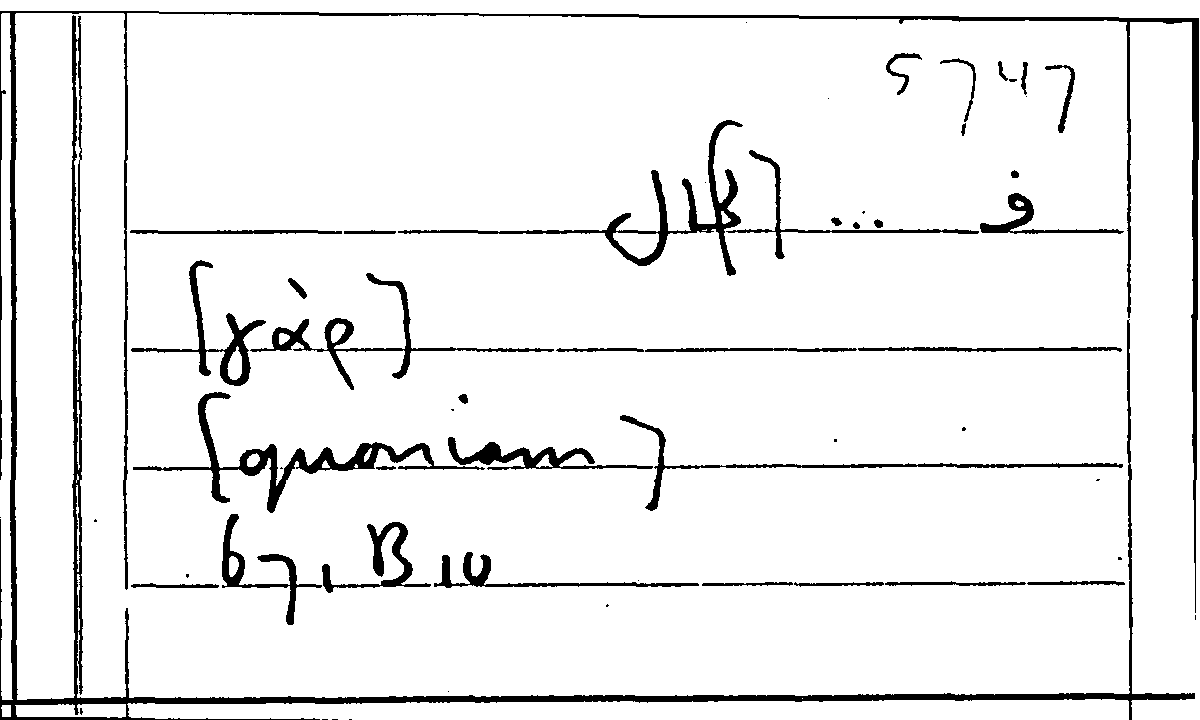 5747
ف ... [B]
[γὰρ]
[quoniam]
67, B 10